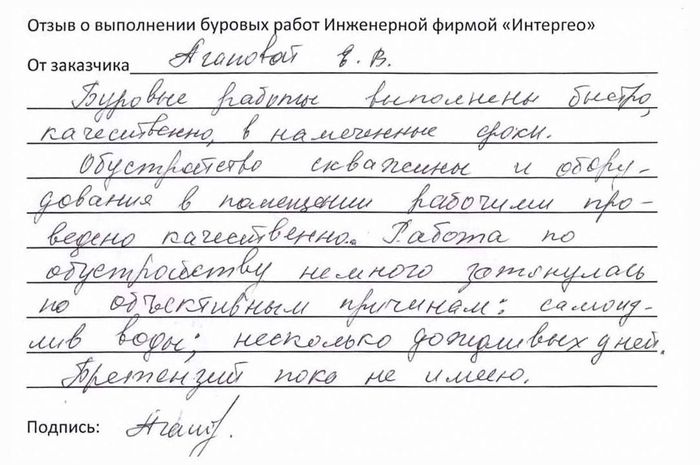 Отзыв о выполнении буровых работ Инженерной фирмой «Интергео»
От заказчика Агаповой Е. В.
Буровые работы выполнены быстро,
качественно, в намеченные сроки.
Обустройство скважины и обору-
дования в помещении рабочими про-
ведено качественно. Работа по
обустройству немного затянулась
по объективным причинам: самоиз-
лив воды; несколько дождливых дней.
Претензий пока не имею.
Подпись: